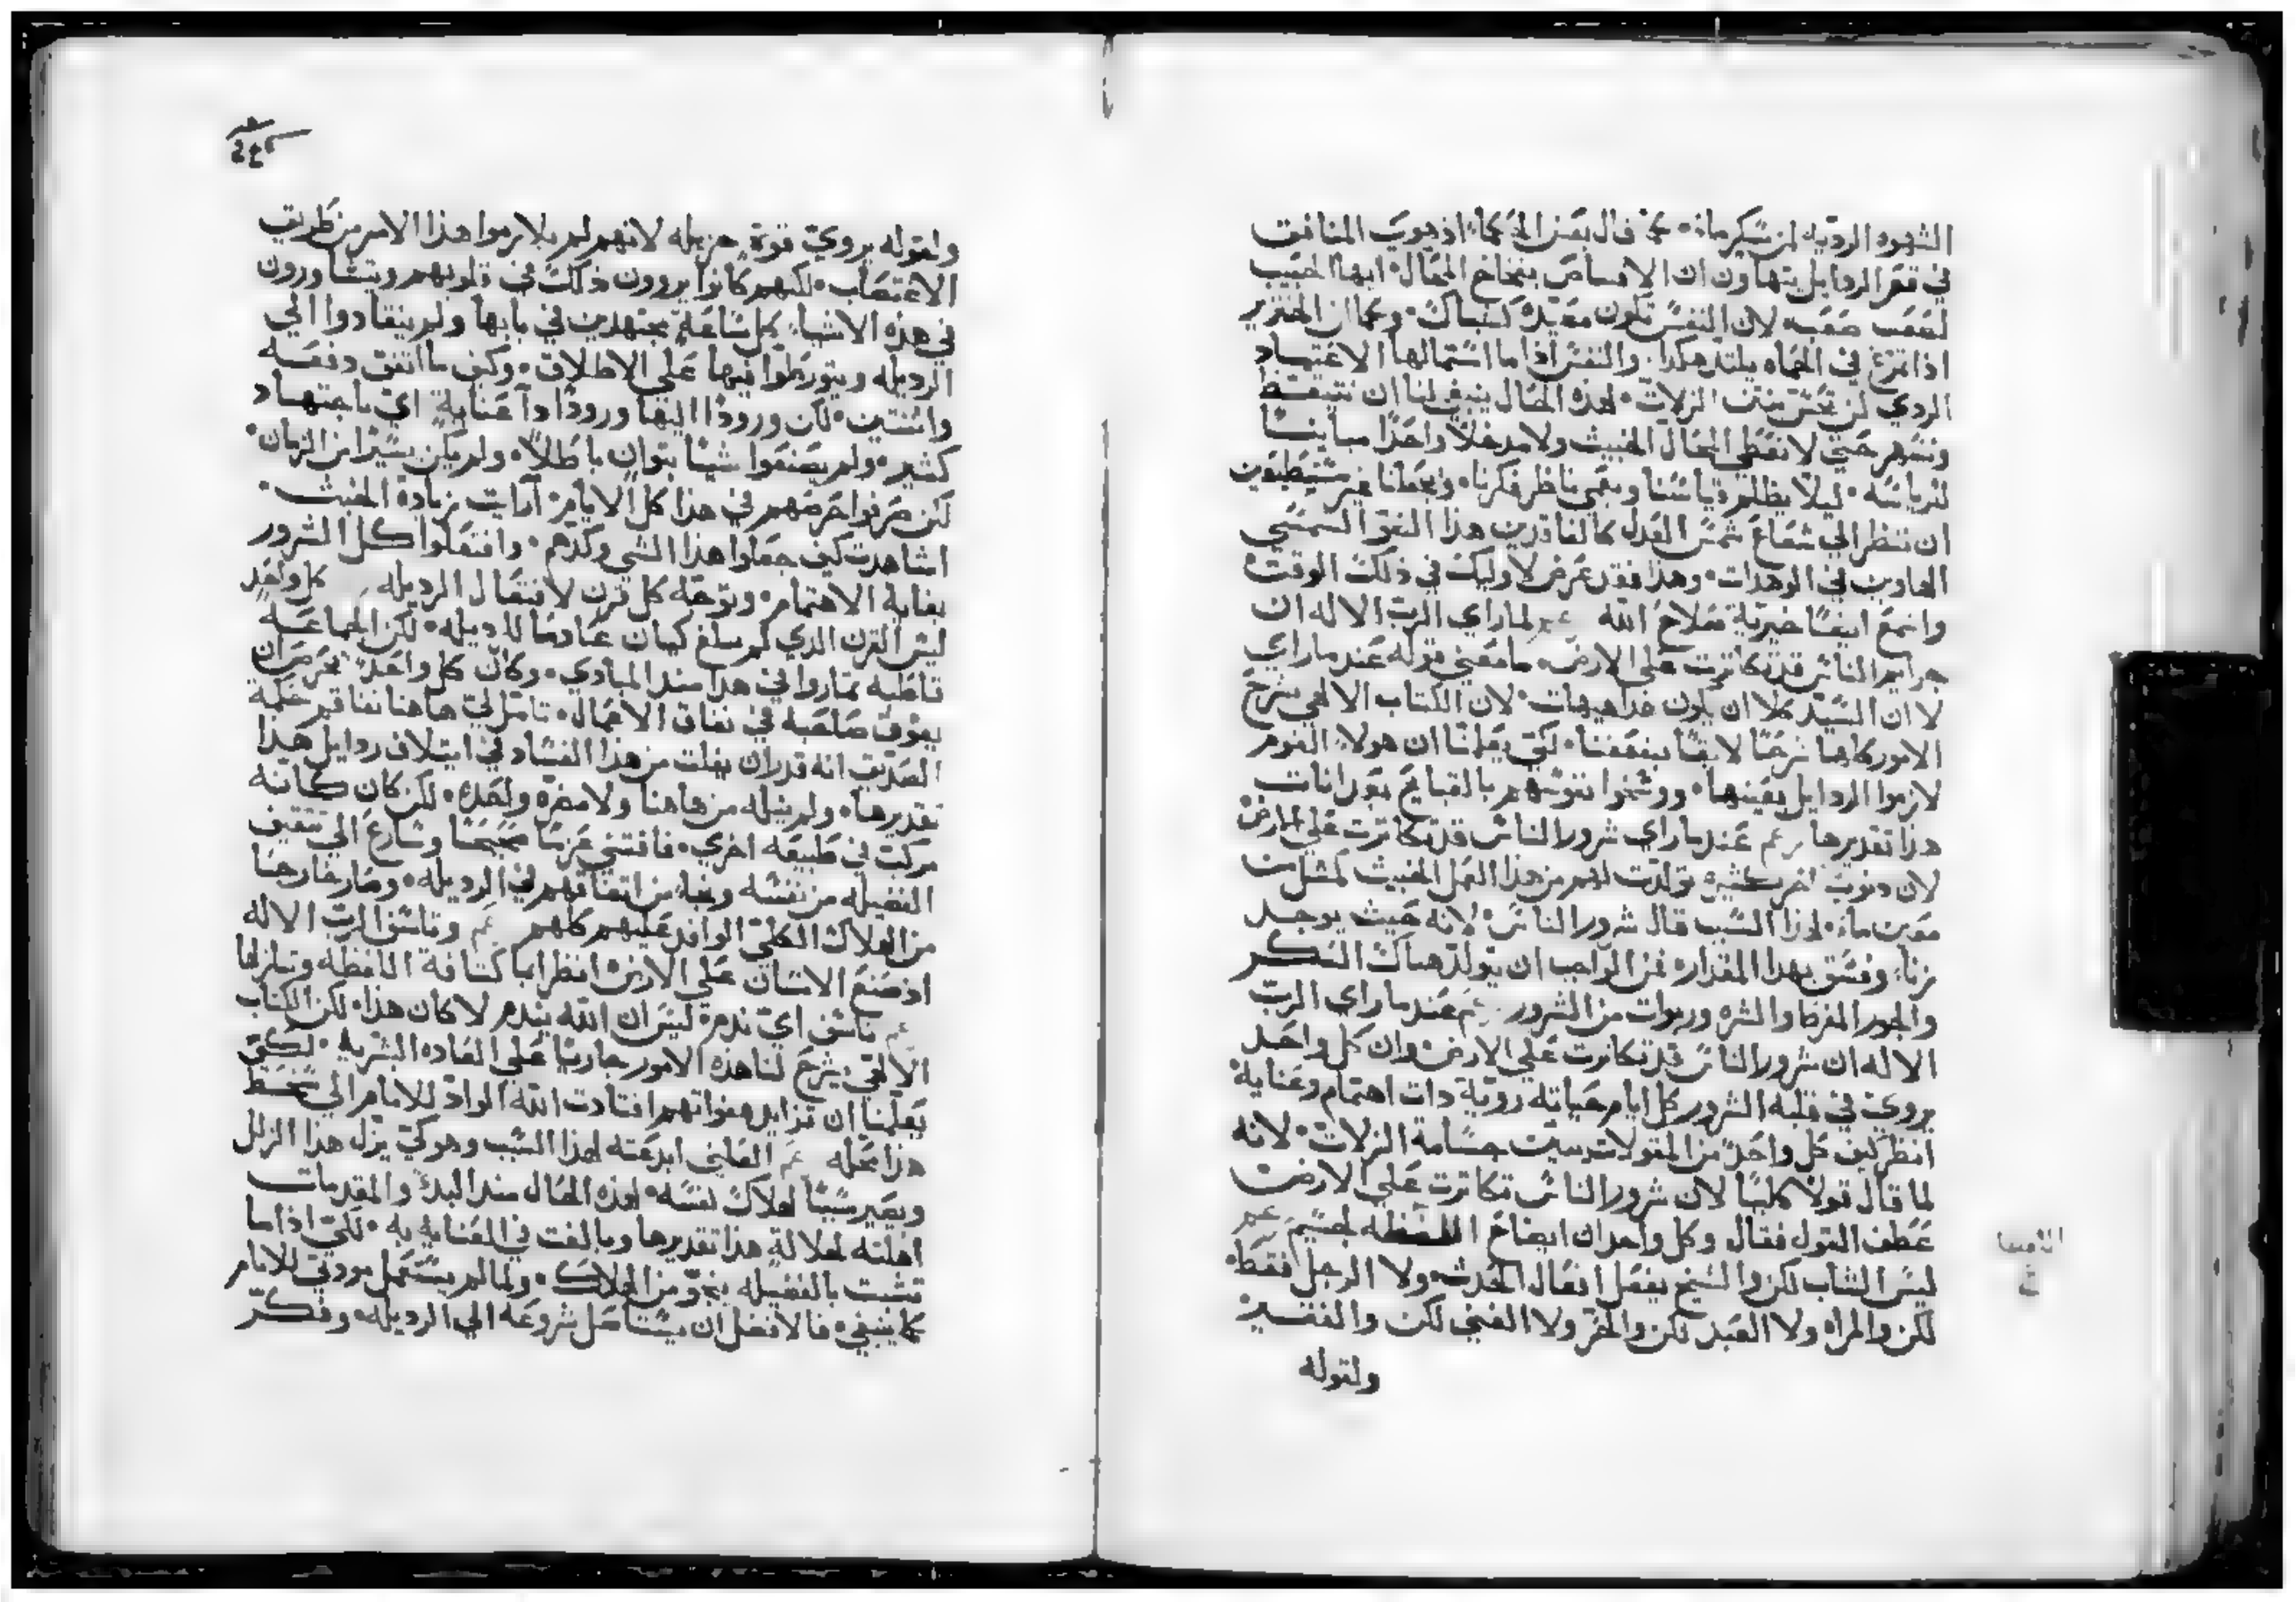 الشهوه الرديه لمن سكر ماه كما قال بعض الحكماء اذ يهوي المنافق
في قعر الردايل يتهاون ان الاقتصاص بنخاخ المحال ايها الحبيب
لصعب صعبه لان النفس تكون مقيده كشباك وكما ان الخنزير
اذا تمرغ في الحماه يلتد هكدا والنفس اذا ما استمالها الاعتياد
الردي لن تحس بنتن الزلات لهذه الحال ينبغي لنا ان نتيقظ
ونسهر حتي لا نعطي المحال الخبيث ولا مدخلا واحدا مباينا
لترياسه ليلا يظلم قياسنا ويعمي ناظر فكرنا ويجعلنا غير مستطيعين
ان ننظر الي شعاع شمس العدل كالفاقدين هذا الضو الشمسي
الهاوين في الوهدات وهذا فقد عرض لاوليك في ذلك الوقت
واسمع ايضا خيرية صلاح الله لما راي الرب الاله ان
جرايم الناس قد تكاثرت علي الارض ما معني قوله عند ما راي
لا ان السيد كلا ان يكون هدا هيهات لان الكتاب الالهي يشرح
الامور كلها شرحا لايقا بضعفنا لكي يعلمنا ان هولاء القوم
لازموا الردايل بعينها ووسخوا نفوسهم بالقبايح بعد اناث
هدا تقديرها عند ما راي شرور الناس قد تكاثرت علي الارض
لان دنوب اخر كثيره تولدت لهم من هذا العمل الخبيث كمثل من
معين ماء لهذا السبب قال شرور الناس لانه حيث يوجد
زناء وفسق بهدا المقدار فمن الواجب ان يتولد هناك السكر
والجور المفرط والشره وربوات من الشرور عند ما راي الرب
الاله ان شرور الناس قد تكاثرت علي الارض وان كل واحد
يروي في قلبه الشرور كل ايام حياته روية دات اهتمام وعناية
انظر كيف كل واحد من المقولات يبين جسامة الزلات لانه
لما قال قولا كليا لان شرور الناس تكاثرت علي الارض
عطف القول فقال وكل واحد ان ايضاع اللفظه لجسيم
ليس الشاب لكن والشيخ يفعل افعال الحدث ولا الرجل فقط
لكن والمراه ولا العبد لكن والحر ولا الغني لكن والفقير
ولقوله
ولقوله يروي قوة جزيله لانهم لم يلازموا هذا الامر من طريق
الاغتصاب لكنهم كانوا يروون ذلك في قلوبهم ويتشاورون
في هذه الاشياء كل ساعة مجتهدين في بابها ولم ينقادوا الي
الرديله ويتورطوا فيها علي الاطلاق وكيف ما اتفق دفعه
واتنتين لكن ورودا اليها ورودا دا عناية اي باجتهاد
كثير ولم يصنعوا شيا بتوان باطلا ولم يكن يسيرا من الزمان
لكن صرفوا حرصهم في هذا كل الايام ارايت زيادة الخبث
اشاهدت كيف جعلوا هذا الشي وكدهم وافتعلوا كل الشرور
بغاية الاهتمام وتوجه كل قرن لانتقال الرديله كل واحد
ليس القرن الدي لم يبلغ كيان عادما للرديله لكن الجماعه
قاطبه تماروا في هدا مند المبادي وكان كل واحد يحرص ان
يفوق صاحبه في نفاق الاعمال تامل لي هاهنا تفاقم حكمة
الصديق انه قدر ان يفلت من هذا الفساد في ايتلاف ردايل هدا
تقديرها ولم ينله من هاهنا ولا مضره واحده لكن كان كانه
مركب في طبيعه اخري فاقتني عزما صحيحا وسارع الي تثقيف
الفضيله من نفسه ونجا من اتفاقهم في الرديله وصار خارجا
من الهلاك الكلي الوافد عليهم كلهم وتاسف الرب الاله
اذ صنع الانسان علي الارض انظر ايما كثافة اللفظه وتنازلها
تاسف اي ندم ليس ان الله يندم لا كان هذا لكن الكتاب
الالهي يشرح لنا هذه الامور جاريا علي العاده البشريه لكي
يعلمنا ان تزايد هفواتهم اقتادت الله الواد للانام الي سخط
هدا محله العلني ابدعته لهذا السبب وهو كي يزل هذا الزلل
ويصير سببا لهلاك نفسه لهذه الحال مند البدء والمقدمات
اهلته لجلالة هذا تقديرها وبالغت في العناية به لكي اذا ما
تشبث بالفضيله ينجو من الهلاك ولما لم يستعمل مودتي للانام
كما ينبغي فالافضل ان يستاصل شروعه الي الرديله وفكر